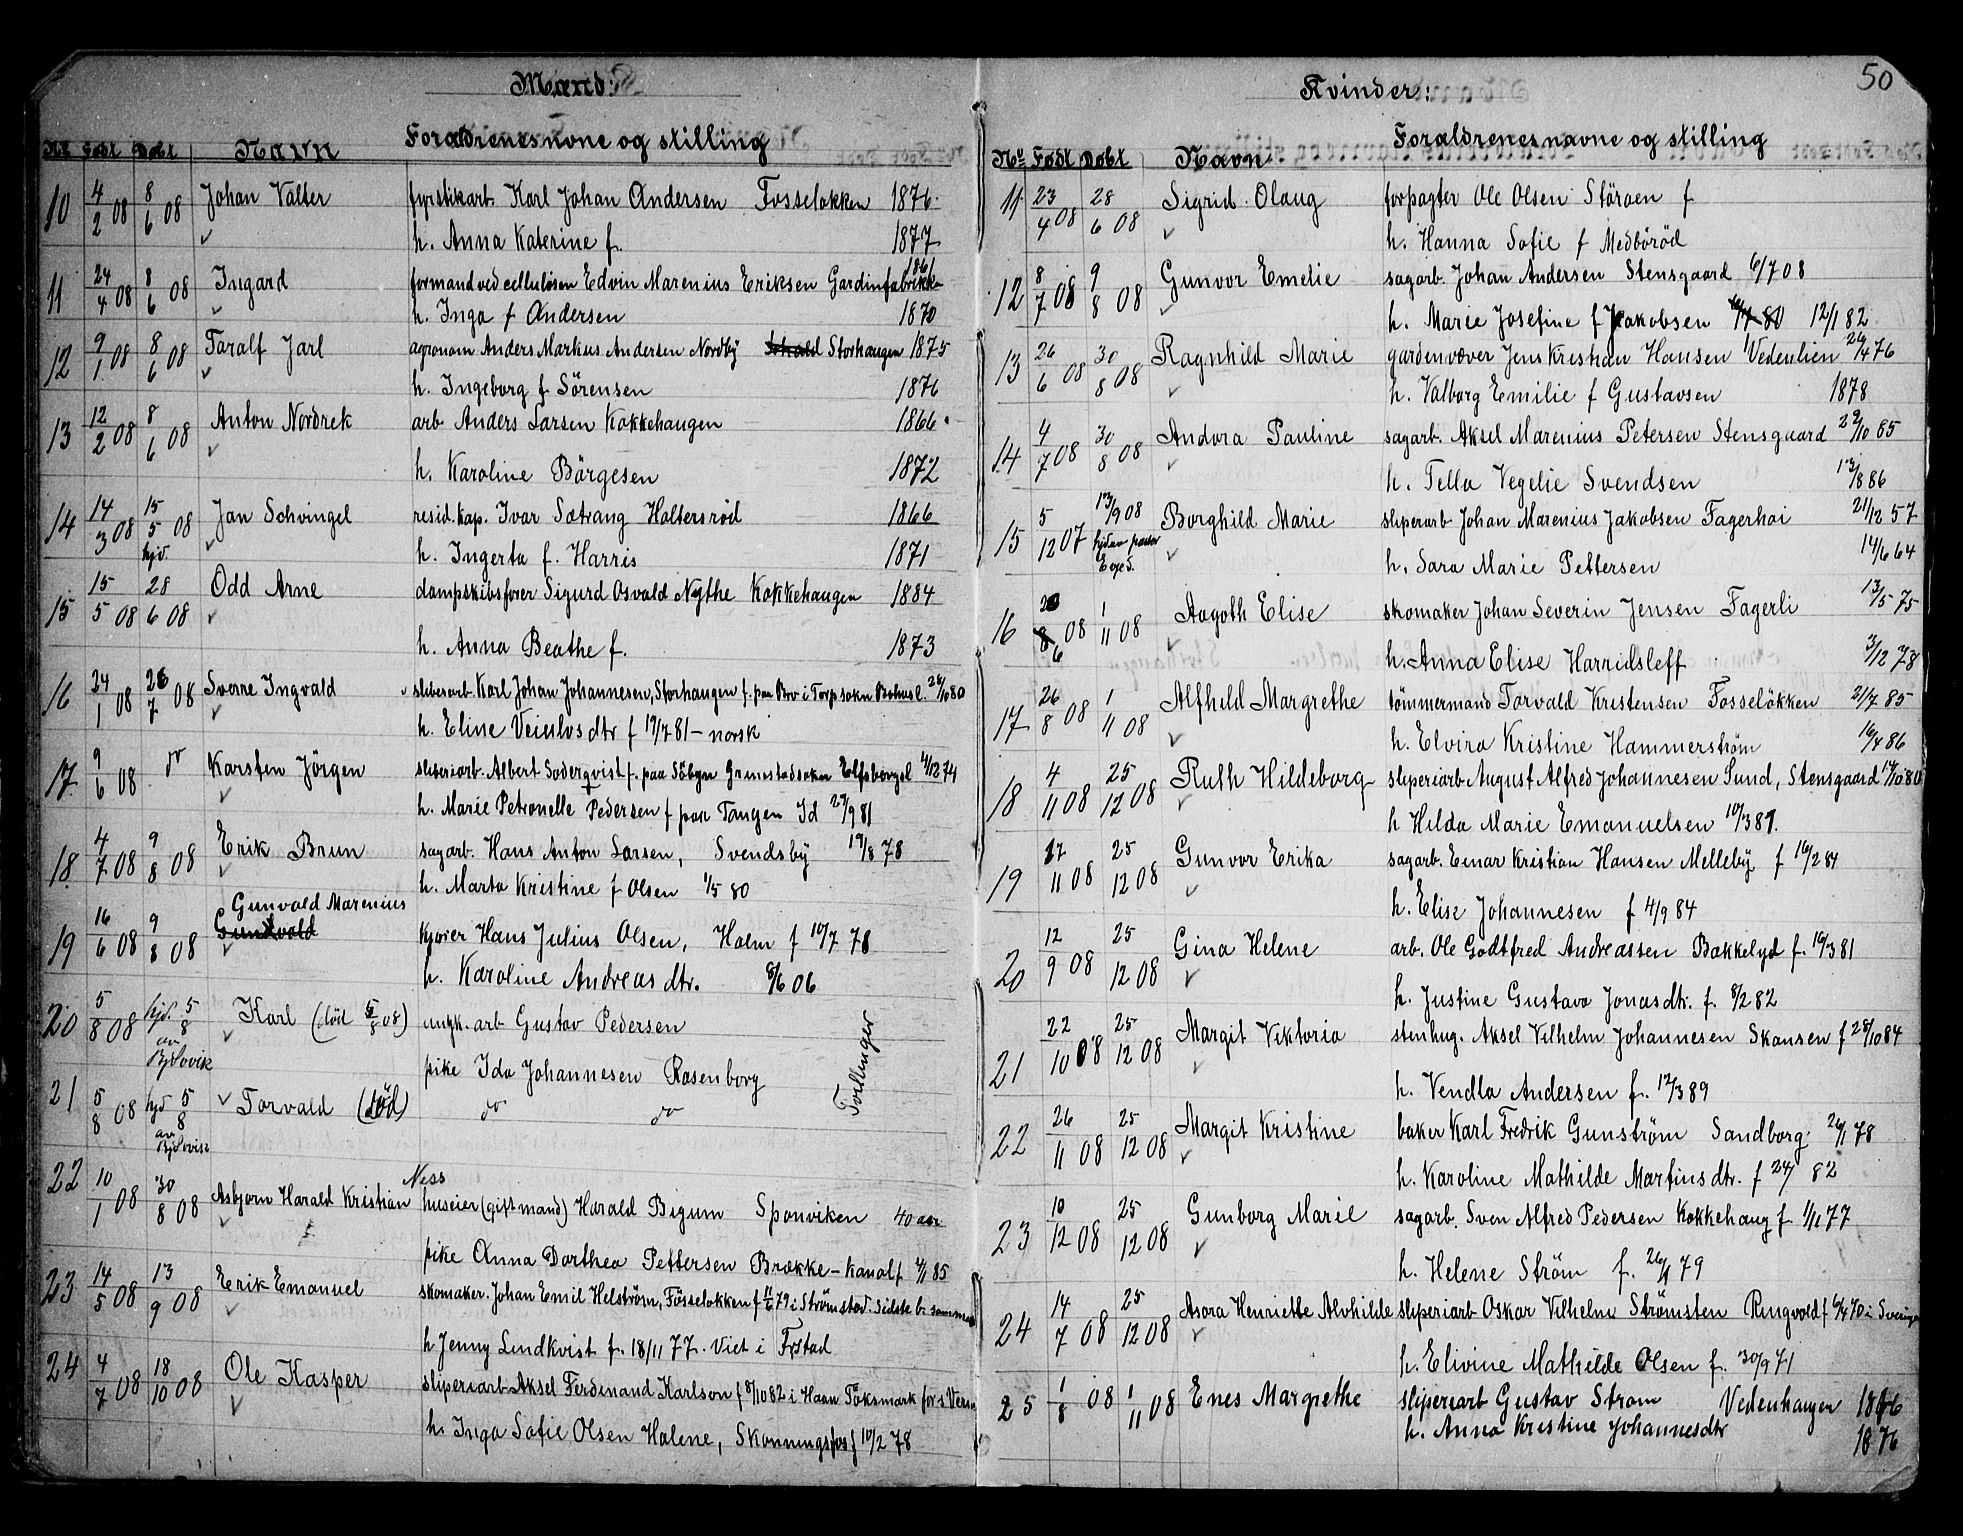 Mænd:
Nr Født Døbt Navn Foraldrenesnavne og stilling
10 4/2 08 8/6 08 Johan Valter fyrstikarb. Karl Johan Andersen Fosseløkken 1876.
h. Anna Katerine f. 1877
11 24/4 08 8/6 08 Ingard formand ved cellulosen Edvin Marenius Eriksen Gardinfabrikk 1861
h. Inga f Andersen 1870
12 9/1 08 8/6 08 Taralf Jarl agronom Anders Markus Andersen Nordby Storhaugen 1875
h. Ingeborg f Sörensen 1876
13 12/2 08 8/6 08 Anton Nordrek arb. Anders Larsen Kokkehaugen 1866
h. Karoline Börgesen 1872
14 14/3 08 15/5 08 hjd. Jan Schvingel resid. kap. Ivar Sætrang Haltersrød 1866
h. Ingerta f. Harris 1871
15 15/5 08 28/6 08 Odd Arne dampskibsfører Sigurd Osvald Nythe Kokkehaugen 1884
h. Anna Beathe f. 1873
16 24/1 08 26/7 08 Sverre Ingvald sliberarb. Karl Johan Johannesen, Storhaugen f. paa Bro i Torp sokn Bohusl. 28/10 80
h. Eline dtr f 17/7 81 – norsk
17 9/6 08 do Karsten Jörgen sliperiarb. Albert Soderqvist f. paa Säbyn Elfsborgsl 4/12 74
h. Marie Petronelle Pedersen f paa Tangen Id 27/9 81
18. 4/7 08 9/8 08 Erik Brun sagarb. Hans Anton Larsen, Svendsby 19/8 78
h. Marta Kristine f Olsen 1/5 80
Gunvald Marenius
19 16/6 08 9/8 08 Gundvald kjører Hans Julius Olsen, Holm f 10/7 78
h. Karoline Andreasdtr. 8/6 06
20 5/8 08 hjd. 5/8 av Karl (död 5/8 08) umyk. arb Gustav Pedersen
pike Ida Johannesen Rosenborg
Tvillinger
21 5/8 08 hjd 5/8 av Torvald (död) do do
Ness
22 10/1 08 30/8 08 Asbjørn Harald Kristian huseier (gift mand) Harald Bigum Sponviken 40 aar
pike Anna Dorthea Pettersen Brække-kanal f 4/1 85
23 14/5 08 13/9 08 Erik Emanuel skomaker. Johan Emil Helström, Fösseløkken f 79 i Strømstad. Sidste b. sammen
h Jenny Lindkvist f. 18/11 77. Viet i Frstad
24 4/7 08 18/10 08 Ole Kasper sliperiarb Aksel Ferdinand Karlson f 8/10 82 i
h. Inga Sofie Olsen Halene, Skonningsfos f 10/2 78
Kvinder: 50
Nr Født Døbt Navn Foraldrenesnavne og stilling
11 23/4 08 28/6 08 Sigrid Olaug forpagter Ole Olsen Störoen f
h. Hanna Sofie f Medbörød
12 8/7 08 9/8 08 Gunvor Emelie sagarb. Johan Andersen Stensgaard 6/7 08
h. Marie Josefine f Jakobsen 12/1 82
13 26/6 08 30/8 08 Ragnhild Marie gardenvæver Jens Kristian Hansen Vedenlien 26/4 76
h. Valborg Emilie f Gustavsen 1878
14 4/7 08 30/8 08 Andora Pauline sagarb. Aksel Marenius Petersen Stensgaard 29/10 85
h. Tella Vegelie Svendsen 13/8 86
15 5/12 07 13/9 08 Borghild Marie sliperarb Johan Marenius Jakobsen Fagerhøi 21/12 57
h. Sara Marie Pettersen 14/6 64
16 20/6 08 1/11 08 Aagoth Elise skomaker Johan Severin Jensen Fagerli 13/5 75
h. Anna Elise Harridsleff 3/12 78
17 26/8 08 1/11 08 Alfhild Margrethe tömmermand Torvald Kristensen Fosselökken 21/7 85
h. Elvira Kristine Hammerström 16/4 86
18 4/11 08 25/12 08 Ruth Hildeborg sliperiarb August Alfred Johannesen Lund, Stensgaard 17/10 80
h Hilda Marie Emanuelsen 10/3 87.
19 17/11 08 25/12 08 Gunvor Erika sagarb. Einar Kristian Hansen Melleby f 16/2 84
h. Elise Johannesen f 4/9 84
20 12/9 08 25/12 08 Gina Helene arb. Ole Godtfred Andreassen Bakkelyd f. 16/3 81
h. Justine Gustava Jonasdtr. f. 8/2 82
21 22/10 08 25/12 08 Margit Viktoria stenhug. Aksel Vilhelm Johannesen Skansen f 28/10 84
h. Vendla Andersen f. 12/3 89
22 26/11 08 25/12 08 Margit Kristine baker Karl Fredrik Gunstrøm Sandborg 26/1 78
h. Karoline Mathilde Martinsdtr. f 24/ 82
23 10/12 08 25/12 08 Gunborg Marie sagarb. Sven Alfred Pedersen Kokkehaug f. 1/1 77
h. Helene Ström f. 26/1 79
24 14/7 08 25/12 08 Asora Henriette Alvhilde sliperiarb Oskar Vilhelm Strömsten Ringvold f 6/4 70 i Sverige
h. Elivine Mathilde Olsen f. 30/9 71
25 1/8 08 1/11 08 Enes Margrethe sliperiarb Gustav Strøm Vedenhaugen
h. Anna Kristine Johannesdtr 1876